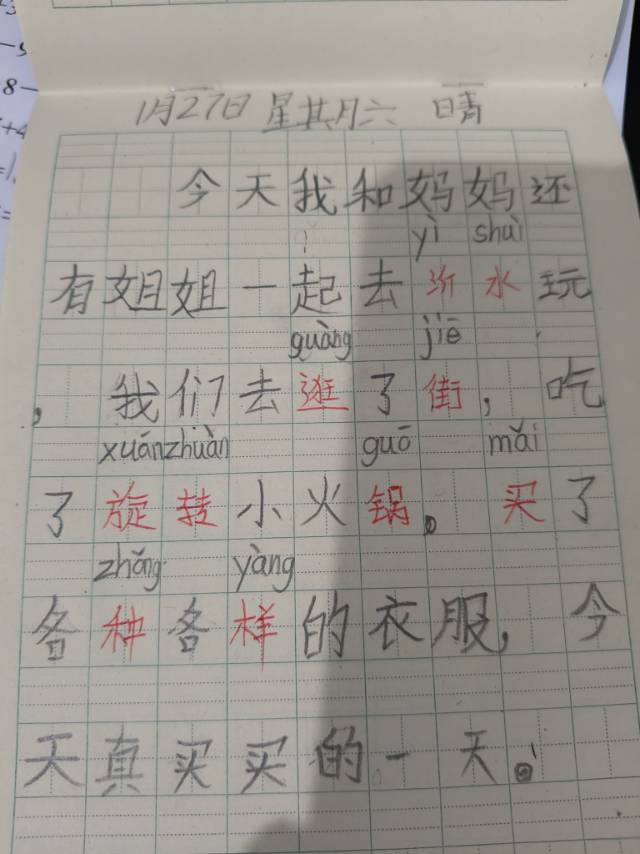 1月27日 星其月六 晴
今天我和妈妈还
yì shuǐ
有姐姐一起去沂水玩
guàng jiē
,我们去逛了街,吃
xuánzhuàn guō mǎi
了旋转小火锅。买了
zhǒng yàng
各种各样的衣服,今
天真买买的一天。